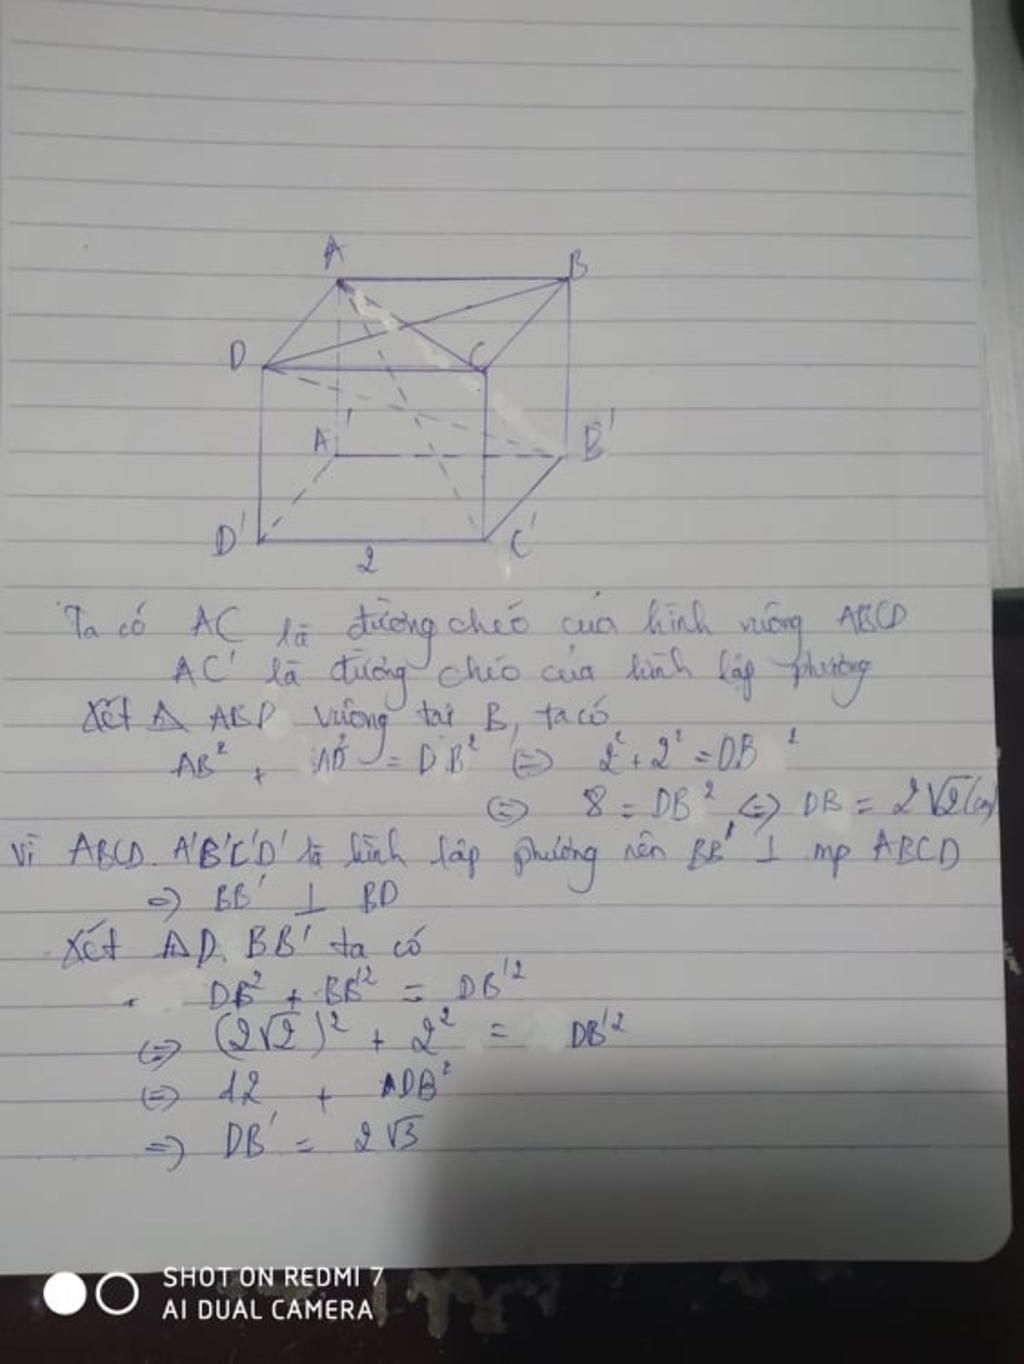 A
B
D
C
A'
B'
D'
C'
2
Ta có AC là đường chéo của hình vuông ABCD
AC' là đường chéo của hình lập phương
Xét Δ ABD vuông tại B, ta có
AB² + AD² = DB² (=) 2² + 2² = DB²
(=) 8 = DB² (=) DB = 2√2 (cm)
Vì ABCD. A'B'C'D' là hình lập phương nên BB' ⊥ mp ABCD
=) BB' ⊥ BD
Xét Δ D. BB' ta có
DB² + BB'² = DB'²
(=) (2√2)² + 2² = DB'²
(=) 12 + DB²
=) DB' = 2√3
SHOT ON REDMI 7
AI DUAL CAMERA